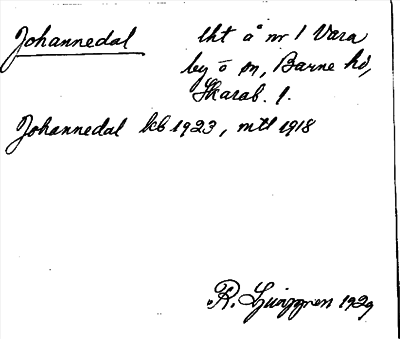 Johannedal
tht å nr 1 Vara
by o sn, Barne hd,
Skarab. l.
Johannedal kb 1923, mtl 1918
R. Ljunggren 1929